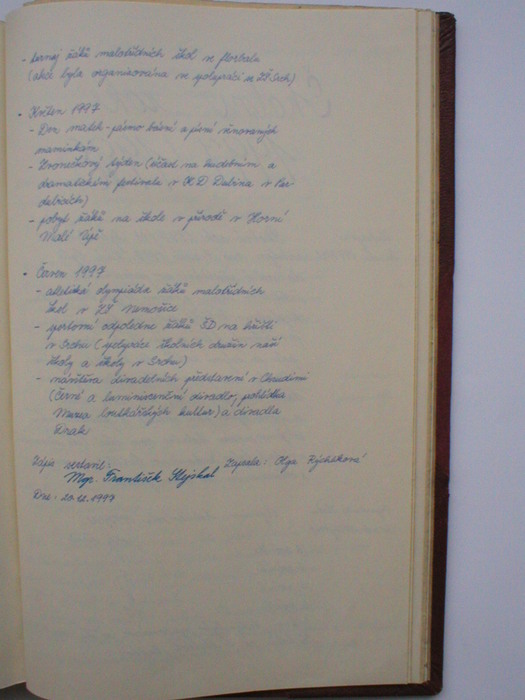 - turnaj žáků malotřídních škol ve florbale
(akce byla organizována ve spolupráci se ZŠ Srch)
• Květen 1997
- Den matek - pásmo básní a písní věnovaných
maminkám
- Zvonečkový týden (účast na hudebním a
dramatickém festivalu v KD Dubina v Par
dubicích)
- pobyt žáků na škole v přírodě v Horní
Malé Úpě
• Červen 1997
- atletická olympiáda žáků malotřídních
škol v ZŠ Nemošice
- sportovní odpoledne žáků ŠD na hřišti
v Srchu (spolupráce školních družin naší
školy a školy v Srchu)
- návštěva divadelních představení v Chrudimi
(Černé a luminiscenční divadlo, prohlídka
Muzea loutkářských kultur) a divadla
Drak
Zápis sestavil: Zapsala: Olga Rýdlová
Mgr. František Klejskal
Dne: 20.12.1997